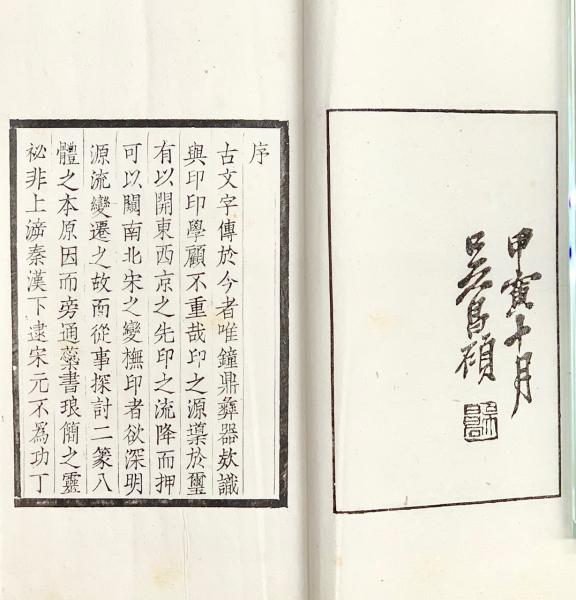 甲寅十月
吳昌碩
序
古文字傳於今者唯鐘鼎彝器欵識
與印印學顧不重哉印之源導於璽
有以開東西京之先印之流降而押
可以闚南北宋之變橅印者欲深明
源流變遷之故而從事探討二篆八
體之本原因而旁通蘂書琅簡之靈
祕非上溯秦漢下逮宋元不為功丁